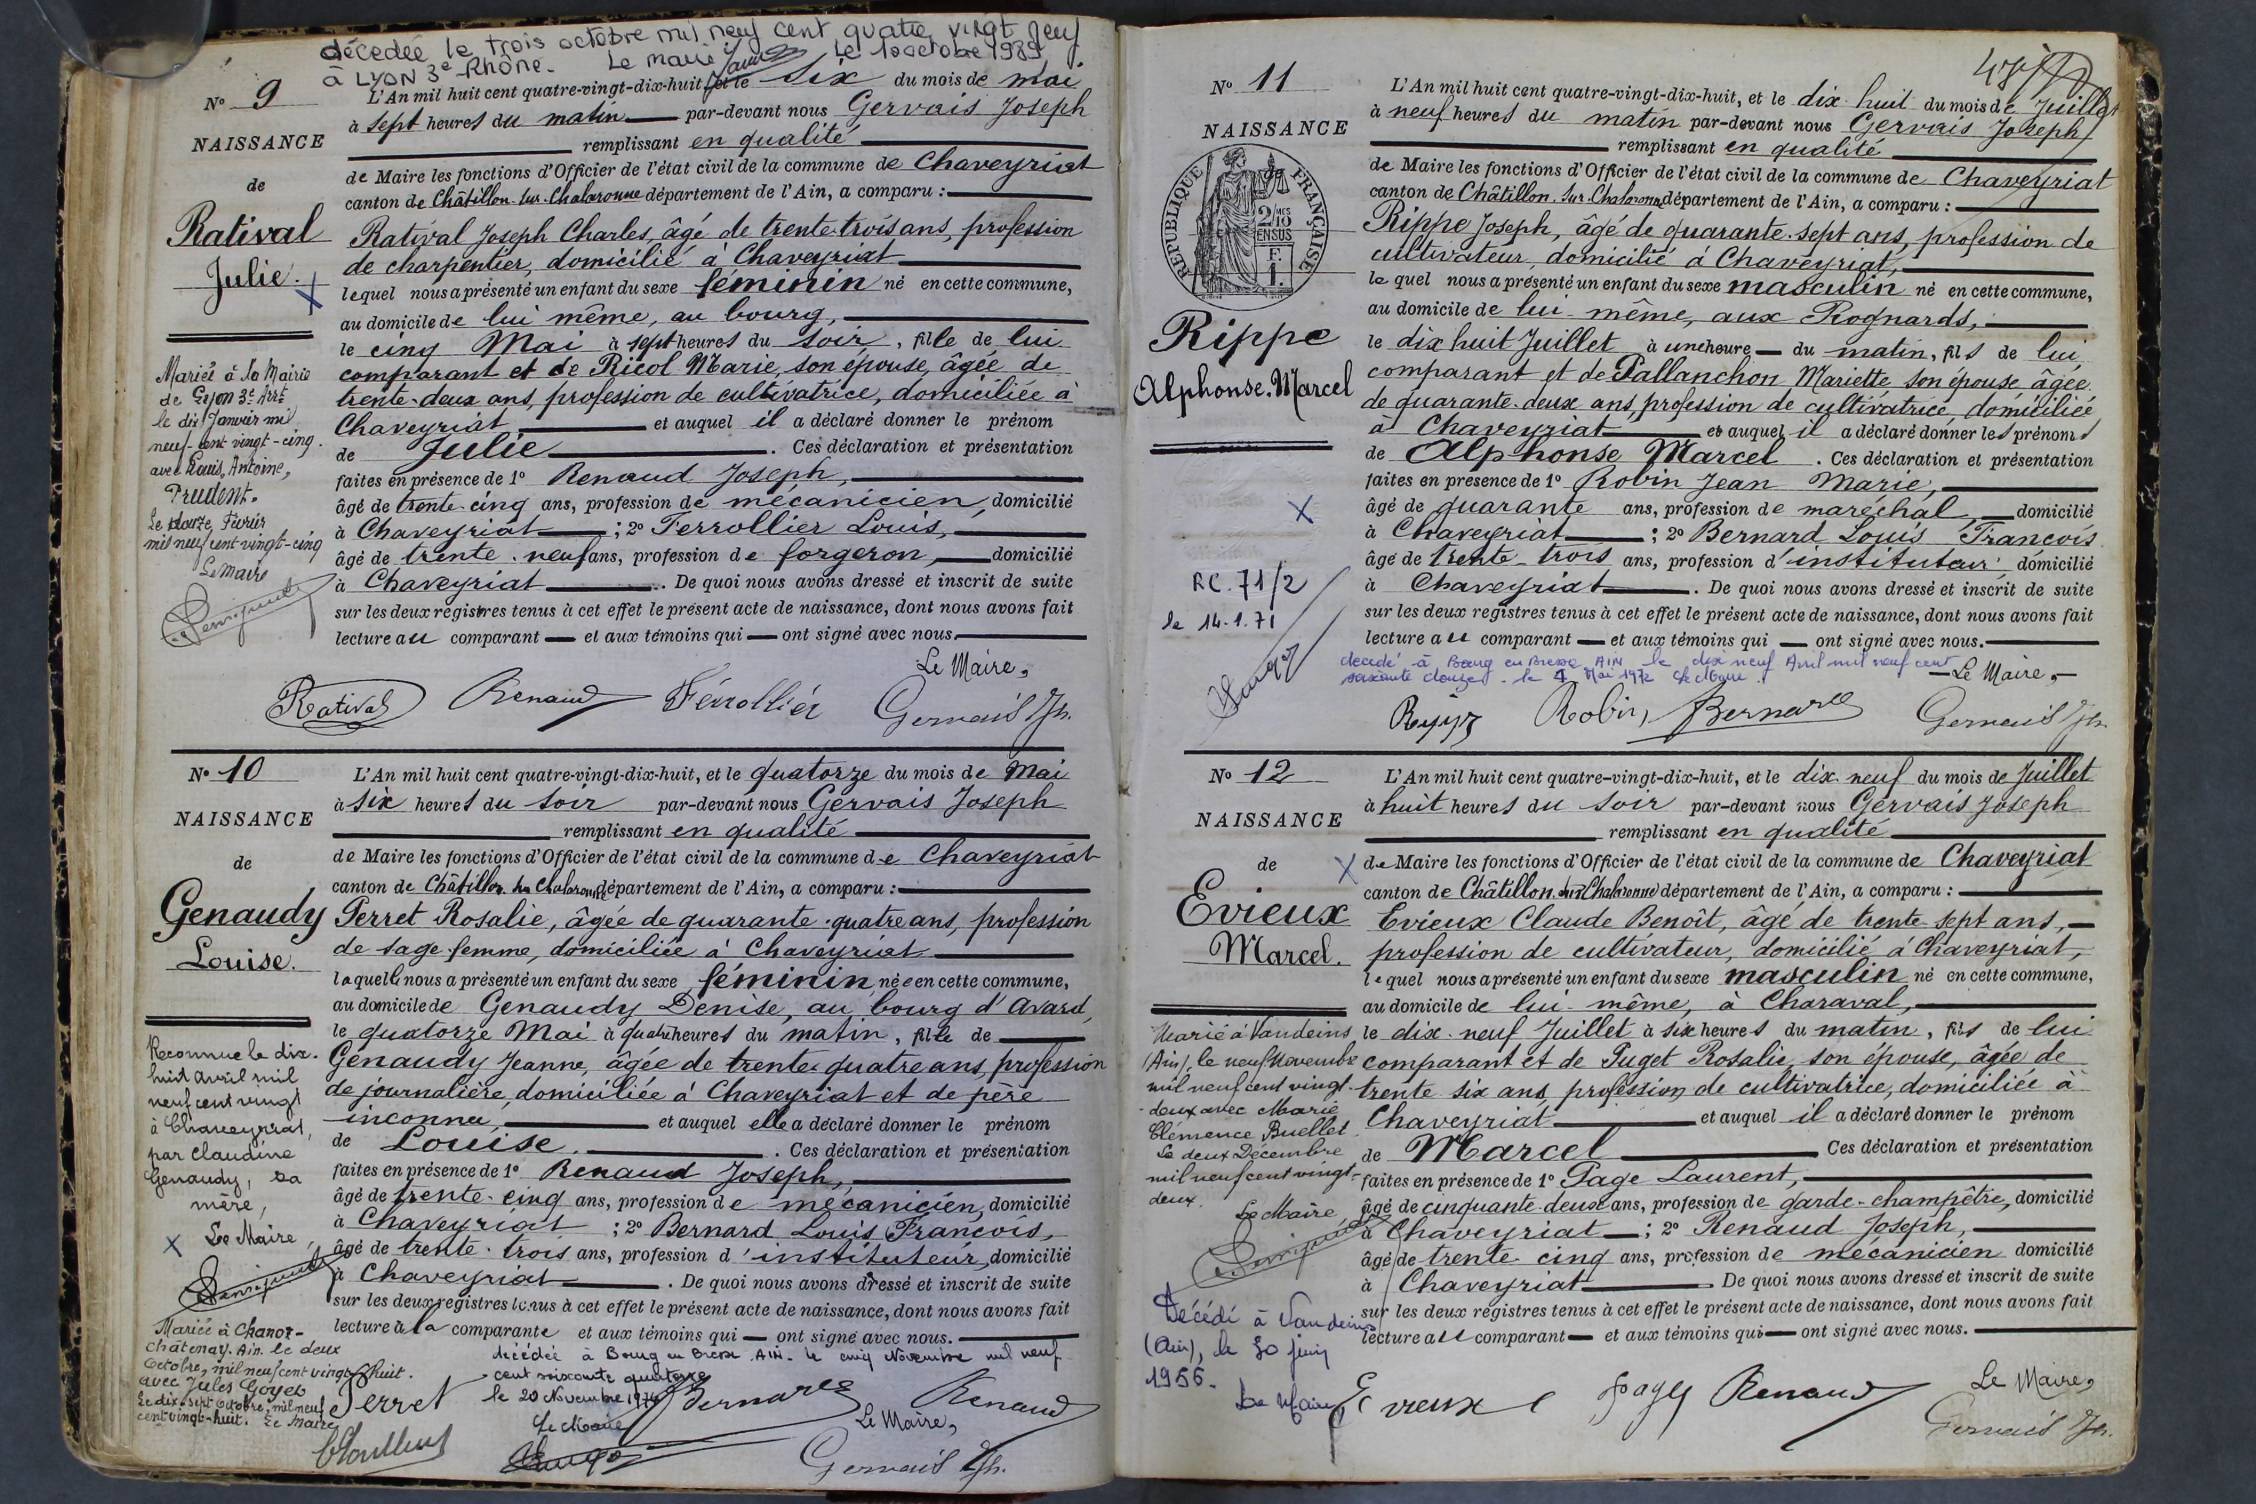 décédée le trois octobre mil neuf cent quatre vingt neuf
à LYON 3e Rhône. Le maire Le 10 octobre 1989
No 9
NAISSANCE
de
Ratival
Julie.
X
Mariée à la Mairie
de Lyon 3e Arrt
le dix Janvier mil
neuf-cent vingt-cinq.
avec Louis, Antoine,
Prudent.
Le douze Février
mil neuf cent vingt-cinq
Le Maire
L'An mil huit cent quatre-vingt-dix-huit, et le six du mois de mai
à sept heures du matin par-devant nous Gervais Joseph
remplissant en qualité
de Maire les fonctions d'Officier de l'état civil de la commune de Chaveyriat
canton de Châtillon-sur-Chalaronne département de l'Ain, a comparu :
Ratival Joseph Charles, âgé de trente-trois ans, profession
de charpentier, domicilié à Chaveyriat
lequel nous a présenté un enfant du sexe féminin né en cette commune,
au domicile de lui même, au bourg,
le cinq Mai à sept heures du soir, fille de lui
comparant et de Ricol Marie, son épouse, âgée de
trente-deux ans, profession de cultivatrice, domiciliée à
Chaveyriat et auquel il a déclaré donner le prénom
de Julie. Ces déclaration et présentation
faites en présence de 1o Renaud Joseph,
âgé de trente cinq ans, profession de mécanicien, domicilié
à Chaveyriat ; 2o Ferrollier Louis,
âgé de trente-neuf ans, profession de forgeron, domicilié
à Chaveyriat. De quoi nous avons dressé et inscrit de suite
sur les deux registres tenus à cet effet le présent acte de naissance, dont nous avons fait
lecture au comparant et aux témoins qui ont signé avec nous.
Le Maire,
Ratival Renaud Férrollier Gervais Jh.
No 10
NAISSANCE
de
Genaudy
Louise.
Reconnue le dix-
huit avril mil
neuf cent vingt
à Chaveyriat,
par Claudine
Genaudy, sa
mère,
X Le Maire,
Mariée à Chanoz-
Châtenay. Ain. le deux
Octobre, mil neuf cent vingt-huit.
avec Jules Goyet
Le dix-sept Octobre, mil neuf
cent vingt-huit. Le Maire
L'An mil huit cent quatre-vingt-dix-huit, et le quatorze du mois de Mai
à six heures du soir par-devant nous Gervais Joseph
remplissant en qualité
de Maire les fonctions d'Officier de l'état civil de la commune de Chaveyriat
canton de Châtillon-sur-Chalaronne département de l'Ain, a comparu :
Perret Rosalie, âgée de quarante-quatre ans, profession
de sage-femme, domiciliée à Chaveyriat
laquelle nous a présenté un enfant du sexe féminin, née en cette commune,
au domicile de Genaudy Denise, au bourg d'Avard,
le quatorze Mai à quatre heures du matin, fille de
Genaudy Jeanne, âgée de trente quatre ans, profession
de journalière, domiciliée à Chaveyriat et de père
inconnu, et auquel elle a déclaré donner le prénom
de Louise. Ces déclaration et présentation
faites en présence de 1o Renaud Joseph,
âgé de trente-cinq ans, profession de mécanicien, domicilié
à Chaveyriat ; 2o Bernard Louis François,
âgé de trente-trois ans, profession d'instituteur, domicilié
à Chaveyriat. De quoi nous avons dressé et inscrit de suite
sur les deux registres tenus à cet effet le présent acte de naissance, dont nous avons fait
lecture à la comparante et aux témoins qui ont signé avec nous.
décédée à Bourg en Bresse. AIN. le cinq Novembre mil neuf
cent soixante quatorze
le 20 Novembre 1974
Le Maire
Perret Bernard Renaud
Le Maire,
Gervais Jh.
No 11
NAISSANCE
de
RÉPUBLIQUE FRANÇAISE
2/10 MES
EN SUS
F.
1.
Rippe
Alphonse. Marcel
X
RC. 71/2
le 14.1.71
L'An mil huit cent quatre-vingt-dix-huit, et le dix-huit du mois de Juillet
à neuf heures du matin par-devant nous Gervais Joseph
remplissant en qualité
de Maire les fonctions d'Officier de l'état civil de la commune de Chaveyriat
canton de Châtillon-sur-Chalaronne département de l'Ain, a comparu :
Rippe Joseph, âgé de quarante-sept ans, profession de
cultivateur, domicilié à Chaveyriat,
lequel nous a présenté un enfant du sexe masculin né en cette commune,
au domicile de lui-même, aux Rognards,
le dix huit Juillet à une heure du matin, fils de lui
comparant et de Pallanchon Mariette son épouse âgée
de quarante-deux ans, profession de cultivatrice, domiciliée
à Chaveyriat et auquel il a déclaré donner les prénoms
de Alphonse Marcel. Ces déclaration et présentation
faites en présence de 1o Robin Jean Marie,
âgé de quarante ans, profession de maréchal, domicilié
à Chaveyriat ; 2o Bernard Louis François
âgé de trente-trois ans, profession d'instituteur domicilié
à Chaveyriat. De quoi nous avons dressé et inscrit de suite
sur les deux registres tenus à cet effet le présent acte de naissance, dont nous avons fait
lecture au comparant et aux témoins qui ont signé avec nous.
décédé à Bourg en Bresse AIN le dix neuf Avril mil neuf cent
soixante douze. le 4 Mai 1972 Le Maire.
Le Maire,
Robin, Bernard Gervais Jh.
No 12
NAISSANCE
de X
Evieux
Marcel.
Marié à Vandeins
(Ain), le neuf Novembre
mil neuf cent vingt-
deux avec Marie
Clémence Buellet.
Le deux Décembre
mil neuf cent vingt-
deux.
Le Maire
Décédé à Vandeins
(Ain), le 30 juin
1956.
Le Maire
L'An mil huit cent quatre-vingt-dix-huit, et le dix-neuf du mois de Juillet
à huit heures du soir par-devant nous Gervais Joseph
remplissant en qualité
de Maire les fonctions d'Officier de l'état civil de la commune de Chaveyriat
canton de Châtillon-sur-Chalaronne département de l'Ain, a comparu :
Evieux Claude Benoît, âgé de trente sept ans,
profession de cultivateur, domicilié à Chaveyriat,
lequel nous a présenté un enfant du sexe masculin né en cette commune,
au domicile de lui-même, à Charaval,
le dix-neuf Juillet à six heures du matin, fils de lui
comparant et de Puget Rosalie, son épouse, âgée de
trente six ans, profession de cultivatrice, domiciliée à
Chaveyriat et auquel il a déclaré donner le prénom
de Marcel Ces déclaration et présentation
faites en présence de 1o Page Laurent,
âgé de cinquante-deux ans, profession de garde-champêtre, domicilié
à Chaveyriat ; 2o Renaud Joseph,
âgé de trente-cinq ans, profession de mécanicien domicilié
à Chaveyriat. De quoi nous avons dressé et inscrit de suite
sur les deux registres tenus à cet effet le présent acte de naissance, dont nous avons fait
lecture au comparant et aux témoins qui ont signé avec nous.
Le Maire,
Evieux Page Renaud Gervais Jh.